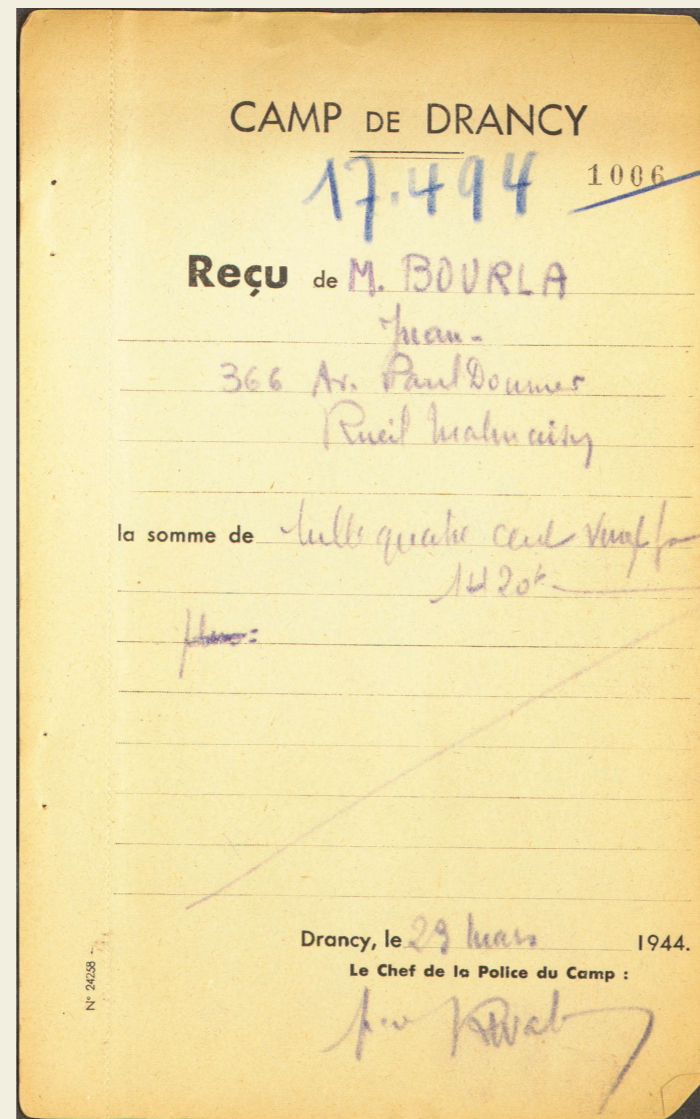 CAMP DE DRANCY
17.494
1006
Reçu de M. BOURLA
Juan -
366 Av. Paul Doumer
Rueil Malmaison
la somme de Mille quatre cent vingt f
1420 f
Drancy, le 29 Mars 1944.
Le Chef de la Police du Camp :
p.o
N° 24258